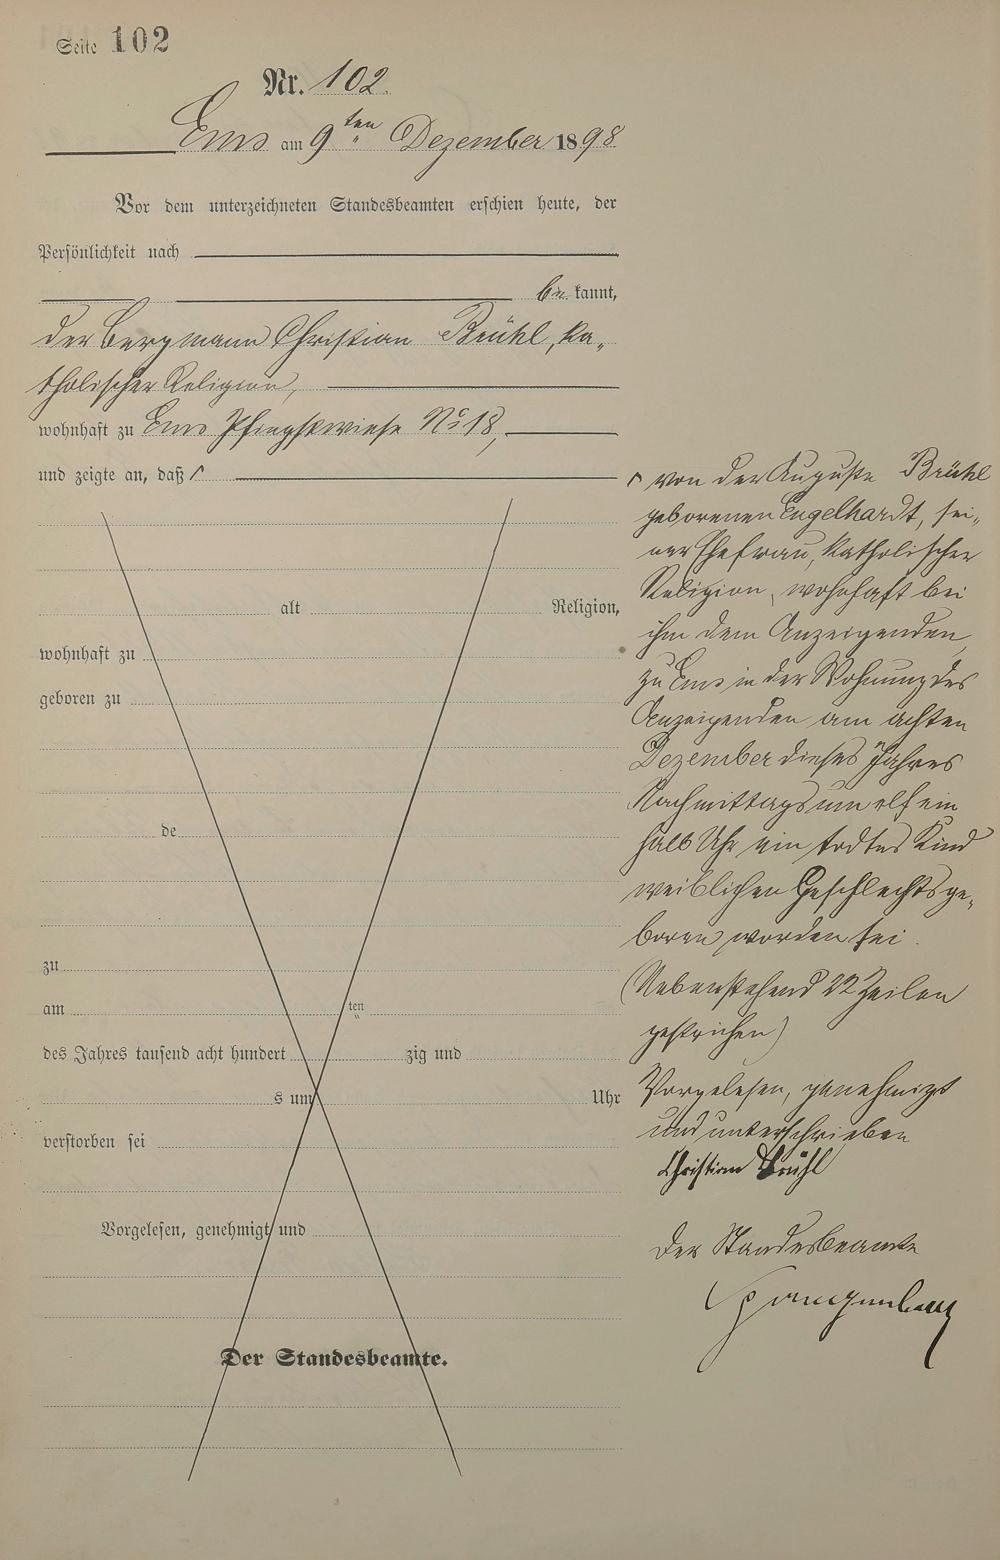 Seite 102
Nr. 102.
Ems am 9ten Dezember 1898
Vor dem unterzeichneten Standesbeamten erschien heute, der
Persönlichkeit nach
be kannt,
der Bergmann Christian Brühl, ka„
tholischer Religion,
wohnhaft zu Ems Pfingstwiese No 18,
und zeigte an, daß ┌
alt Religion,
wohnhaft zu
geboren zu
de
zu
am ten
des Jahres tausend acht hundert zig und
s um Uhr
verstorben sei
Vorgelesen, genehmigt und
Der Standesbeamte.
┌ von der Auguste Brühl
geborenen Engelhardt, sei„
ner Ehefrau, katholischer
Religion, wohnhaft bei
ihm dem Anzeigenden,
zu Ems in der Wohnung des
Anzeigenden am achten
Dezember dieses Jahres
Nachmittags um elf ein
halb Uhr ein todtes Kind
weiblichen Geschlechts ge„
boren worden sei.
(Nebenstehend 22 Zeilen
gestrichen)
Vorgelesen, genehmigt
und unterschrieben
Christian Brühl
Der Standesbeamte
Spangenberg